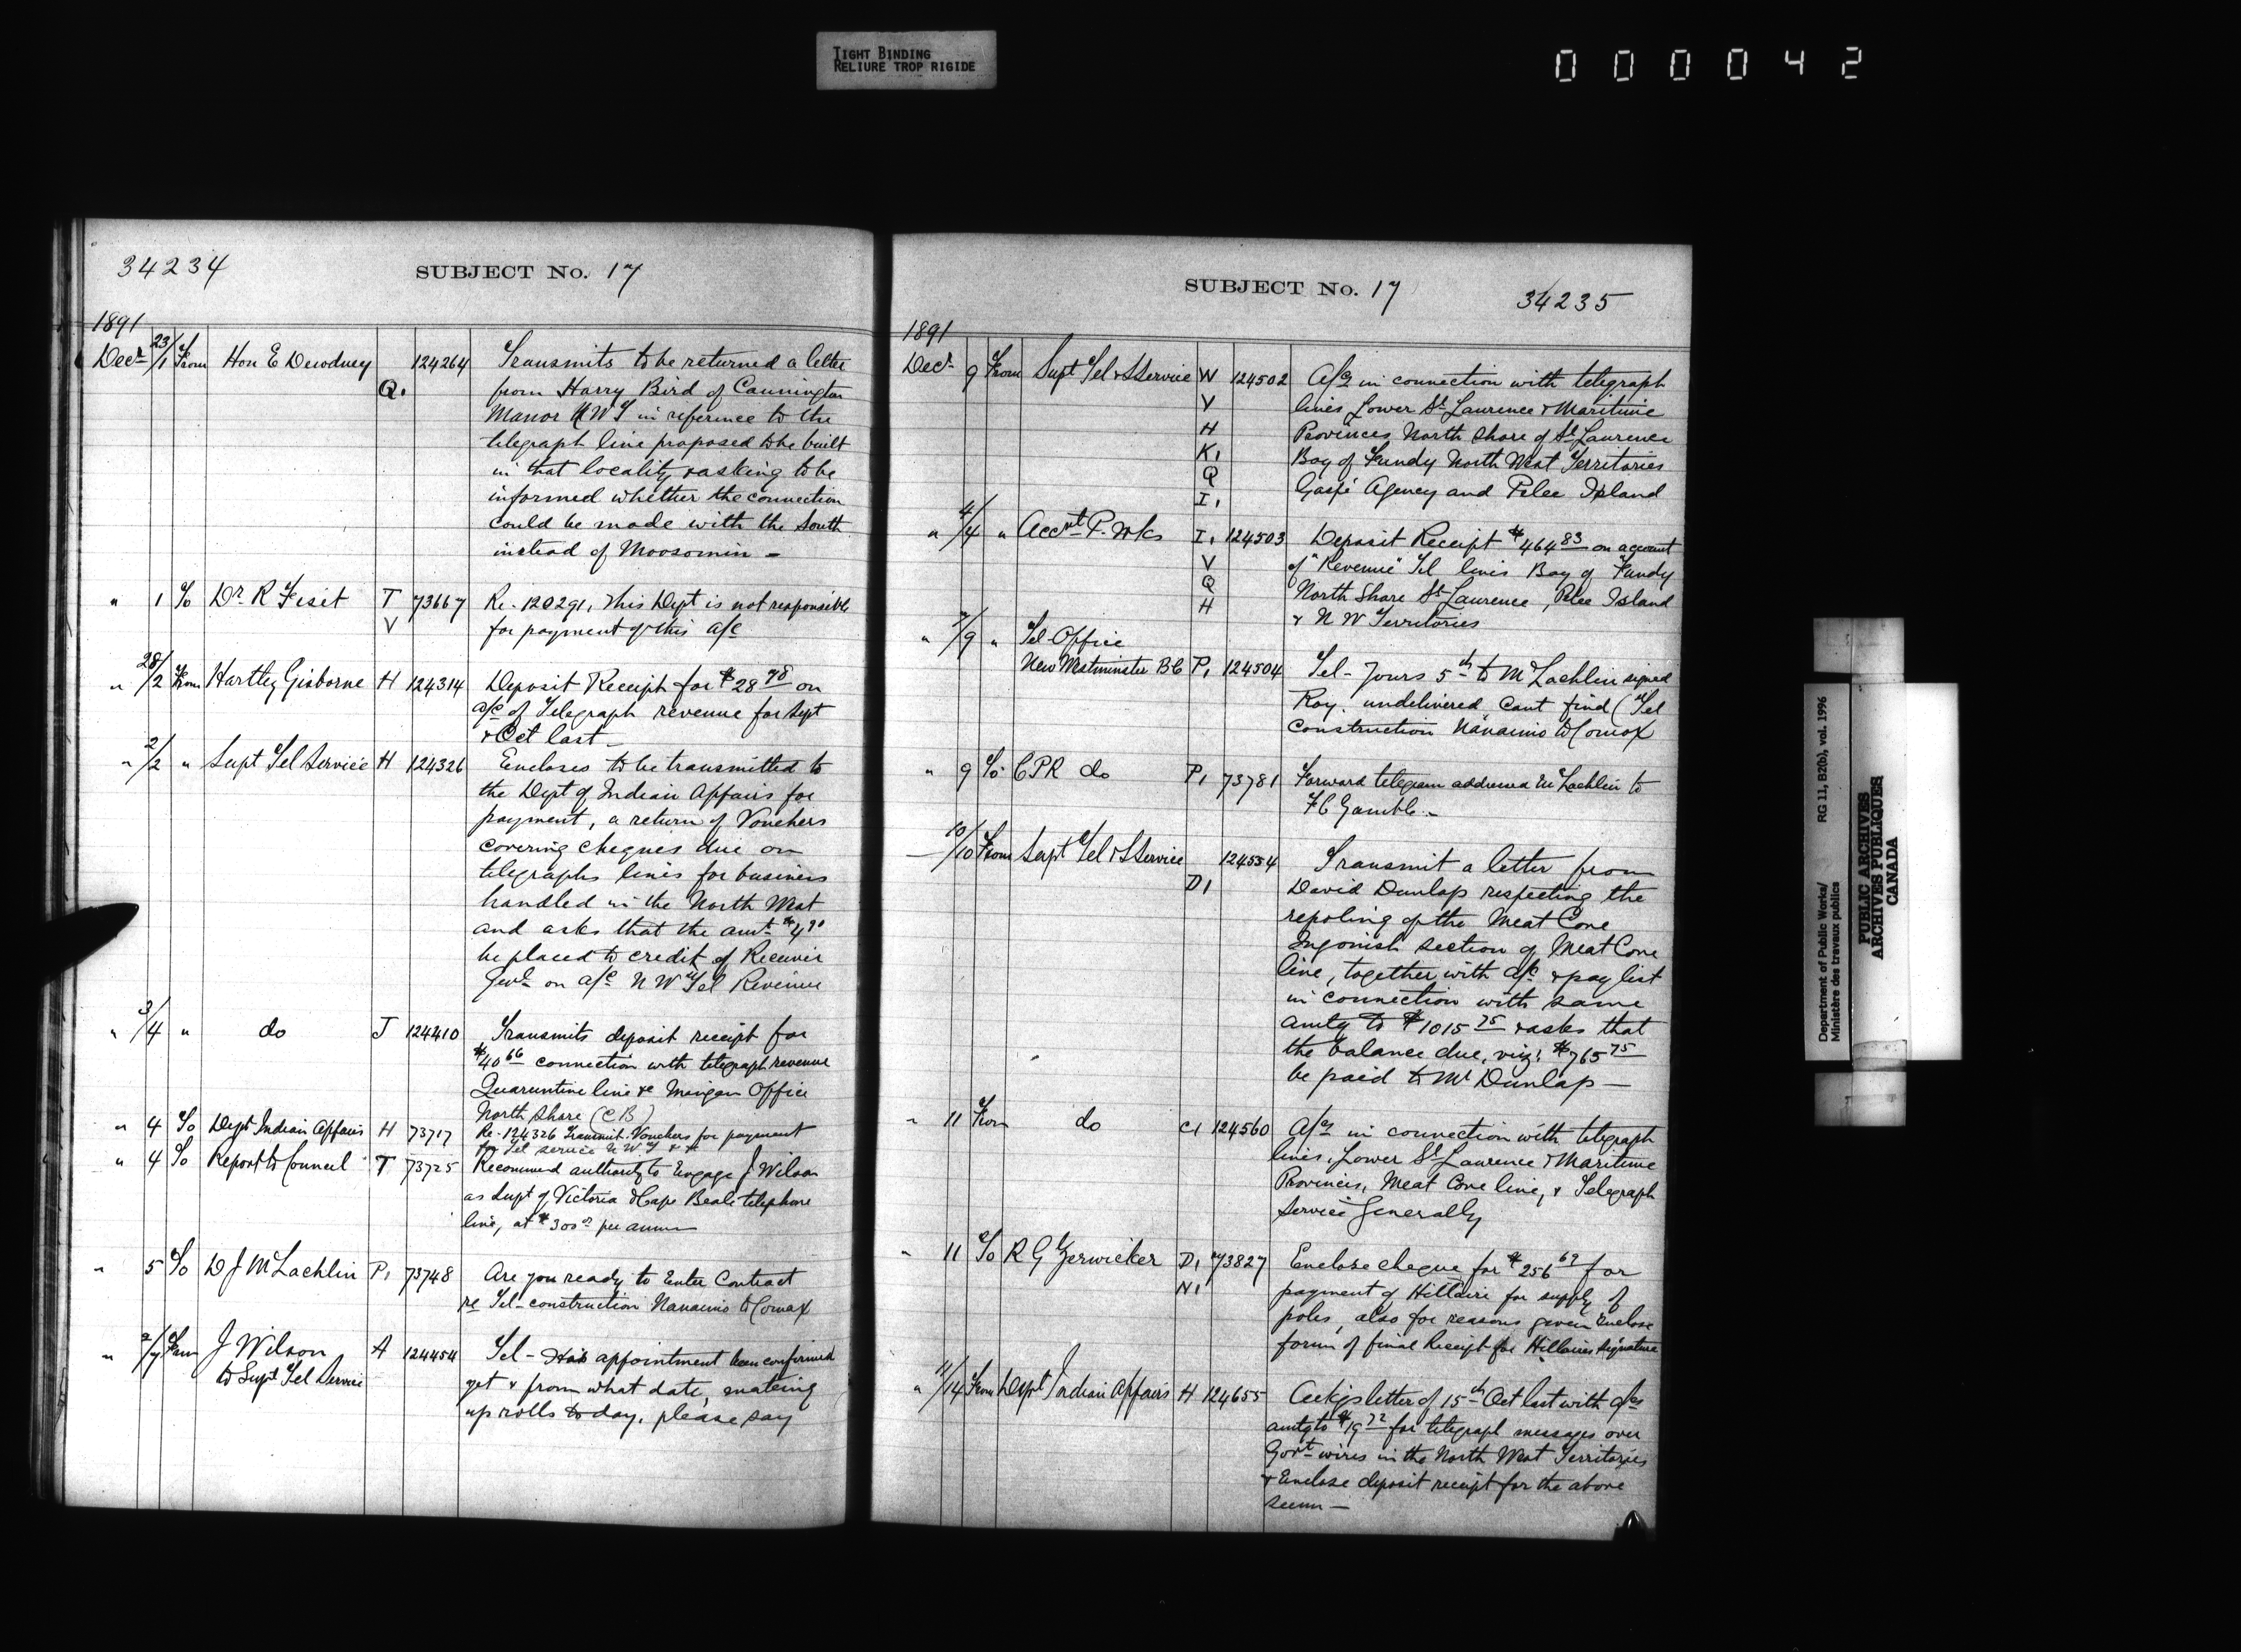 TIGHT BINDING
RELIURE TROP RIGIDE
000042
34234
SUBJECT No. 17
1891
Decr 23/1 From Hon E Dewdney Q. 124264 Transmits to be returned a letter
from Harry Bird of Cannington
Manor NWT in reference to the
telegraph line proposed to be built
in that locality & asking to be
informed whether the connection
could be made with the South
instead of Moosomin –
" 1 To Dr R Fiset T 73667 Re. 120291, This Dept is not responsible
V for payment of this a/c
" 28/2 From Hartley Gisborne H 124314 Deposit Receipt for $28 78 on
a/c of Telegraph revenue for Sept
& Oct last –
" 2/2 " Supt Tel Service H 124326 Encloses to be transmitted to
the Dept of Indian Affairs for
payment, a return of Vouchers
covering cheques due on
telegraphs lines for business
handled in the North West
and asks that the amt $4 90
be placed to credit of Receiver
Genl on a/c N W Tel Revenue
" 3/4 " do J 124410 Transmits deposit receipt for
$40 66 connection with telegraph revenue
Quarantine line & Mingan Office
North Shore (CB)
" 4 To Dept Indian Affairs H 73717 Re. 124326 Transmit Vouchers for payment
for Tel service N W T
" 4 To Report to Council T 73725 Recommend authority to Engage J Wilson
as Supt of Victoria & Cape Beale telephone
line, at $300 00 per annum
" 5 To D J McLachlin P1 73748 Are you ready to Enter Contract
re Tel-construction Nanaimo to Comox
" 2/7 From J Wilson A 124454 Tel – Has appointment been confirmed
to Supt Tel Service yet & from what date, making
up rolls to day, please say
SUBJECT No. 17
34235
1891
Decr 9 From Supt Tel & S Service W 124502 A/cs in connection with telegraph
V lines Lower St Laurence & Maritime
H Provinces North Shore of St Laurence
K1 Bay of Fundy North West Territories
Q Gaspé Agency and Pelee Island
I1
" 4/4 " Accnt P. Wks I1 124503 Deposit Receipt $464 83 on account
V of "Revenue" Tel lines Bay of Fundy
Q North Shore St Laurence, Pelee Island
H & N W Territories
" 7/9 " Tel-Office
New Westminster BC P1 124504 Tel – Yours 5th to McLachlin signed
Roy. undelivered cant find (Tel
Construction Nanaimo to Comox
" 9 To CPR do P1 73781 Forward telegram addressed McLachlin to
F C Gamble –
— 10/10 From Supt Tel & S Service 124534 Transmit a letter from
D1 David Dunlap respecting the
repoling of the Meat Cove
Ingonish section of Meat Cove
line, together with a/c & pay list
in connection with same
amtg to $1015 75 & asks that
the balance due, viz: $765 75
be paid to Mr Dunlap –
" 11 From do C1 124560 A/cs in connection with telegraph
lines, Lower St Laurence & Maritime
Provinces, Meat Cove line, & Telegraph
Service Generally
" 11 To R G Zerwicker D1 73827 Enclose cheque for $256 69 for
N1 payment of Hillaire for supply of
poles, also for reasons given Enclose
form of final Receipt for Hillaires signature
" 11/14 From Dept Indian Affairs H 124655 Ackgs letter of 15th Oct last with a/cs
amtg to $19 72 for telegraph messages over
Govt wires in the North West Territories
& Enclose deposit receipt for the above
sum –
Department of Public Works/ RG 11, B2(b), vol. 1996
Ministère des travaux publics
PUBLIC ARCHIVES
ARCHIVES PUBLIQUES
CANADA